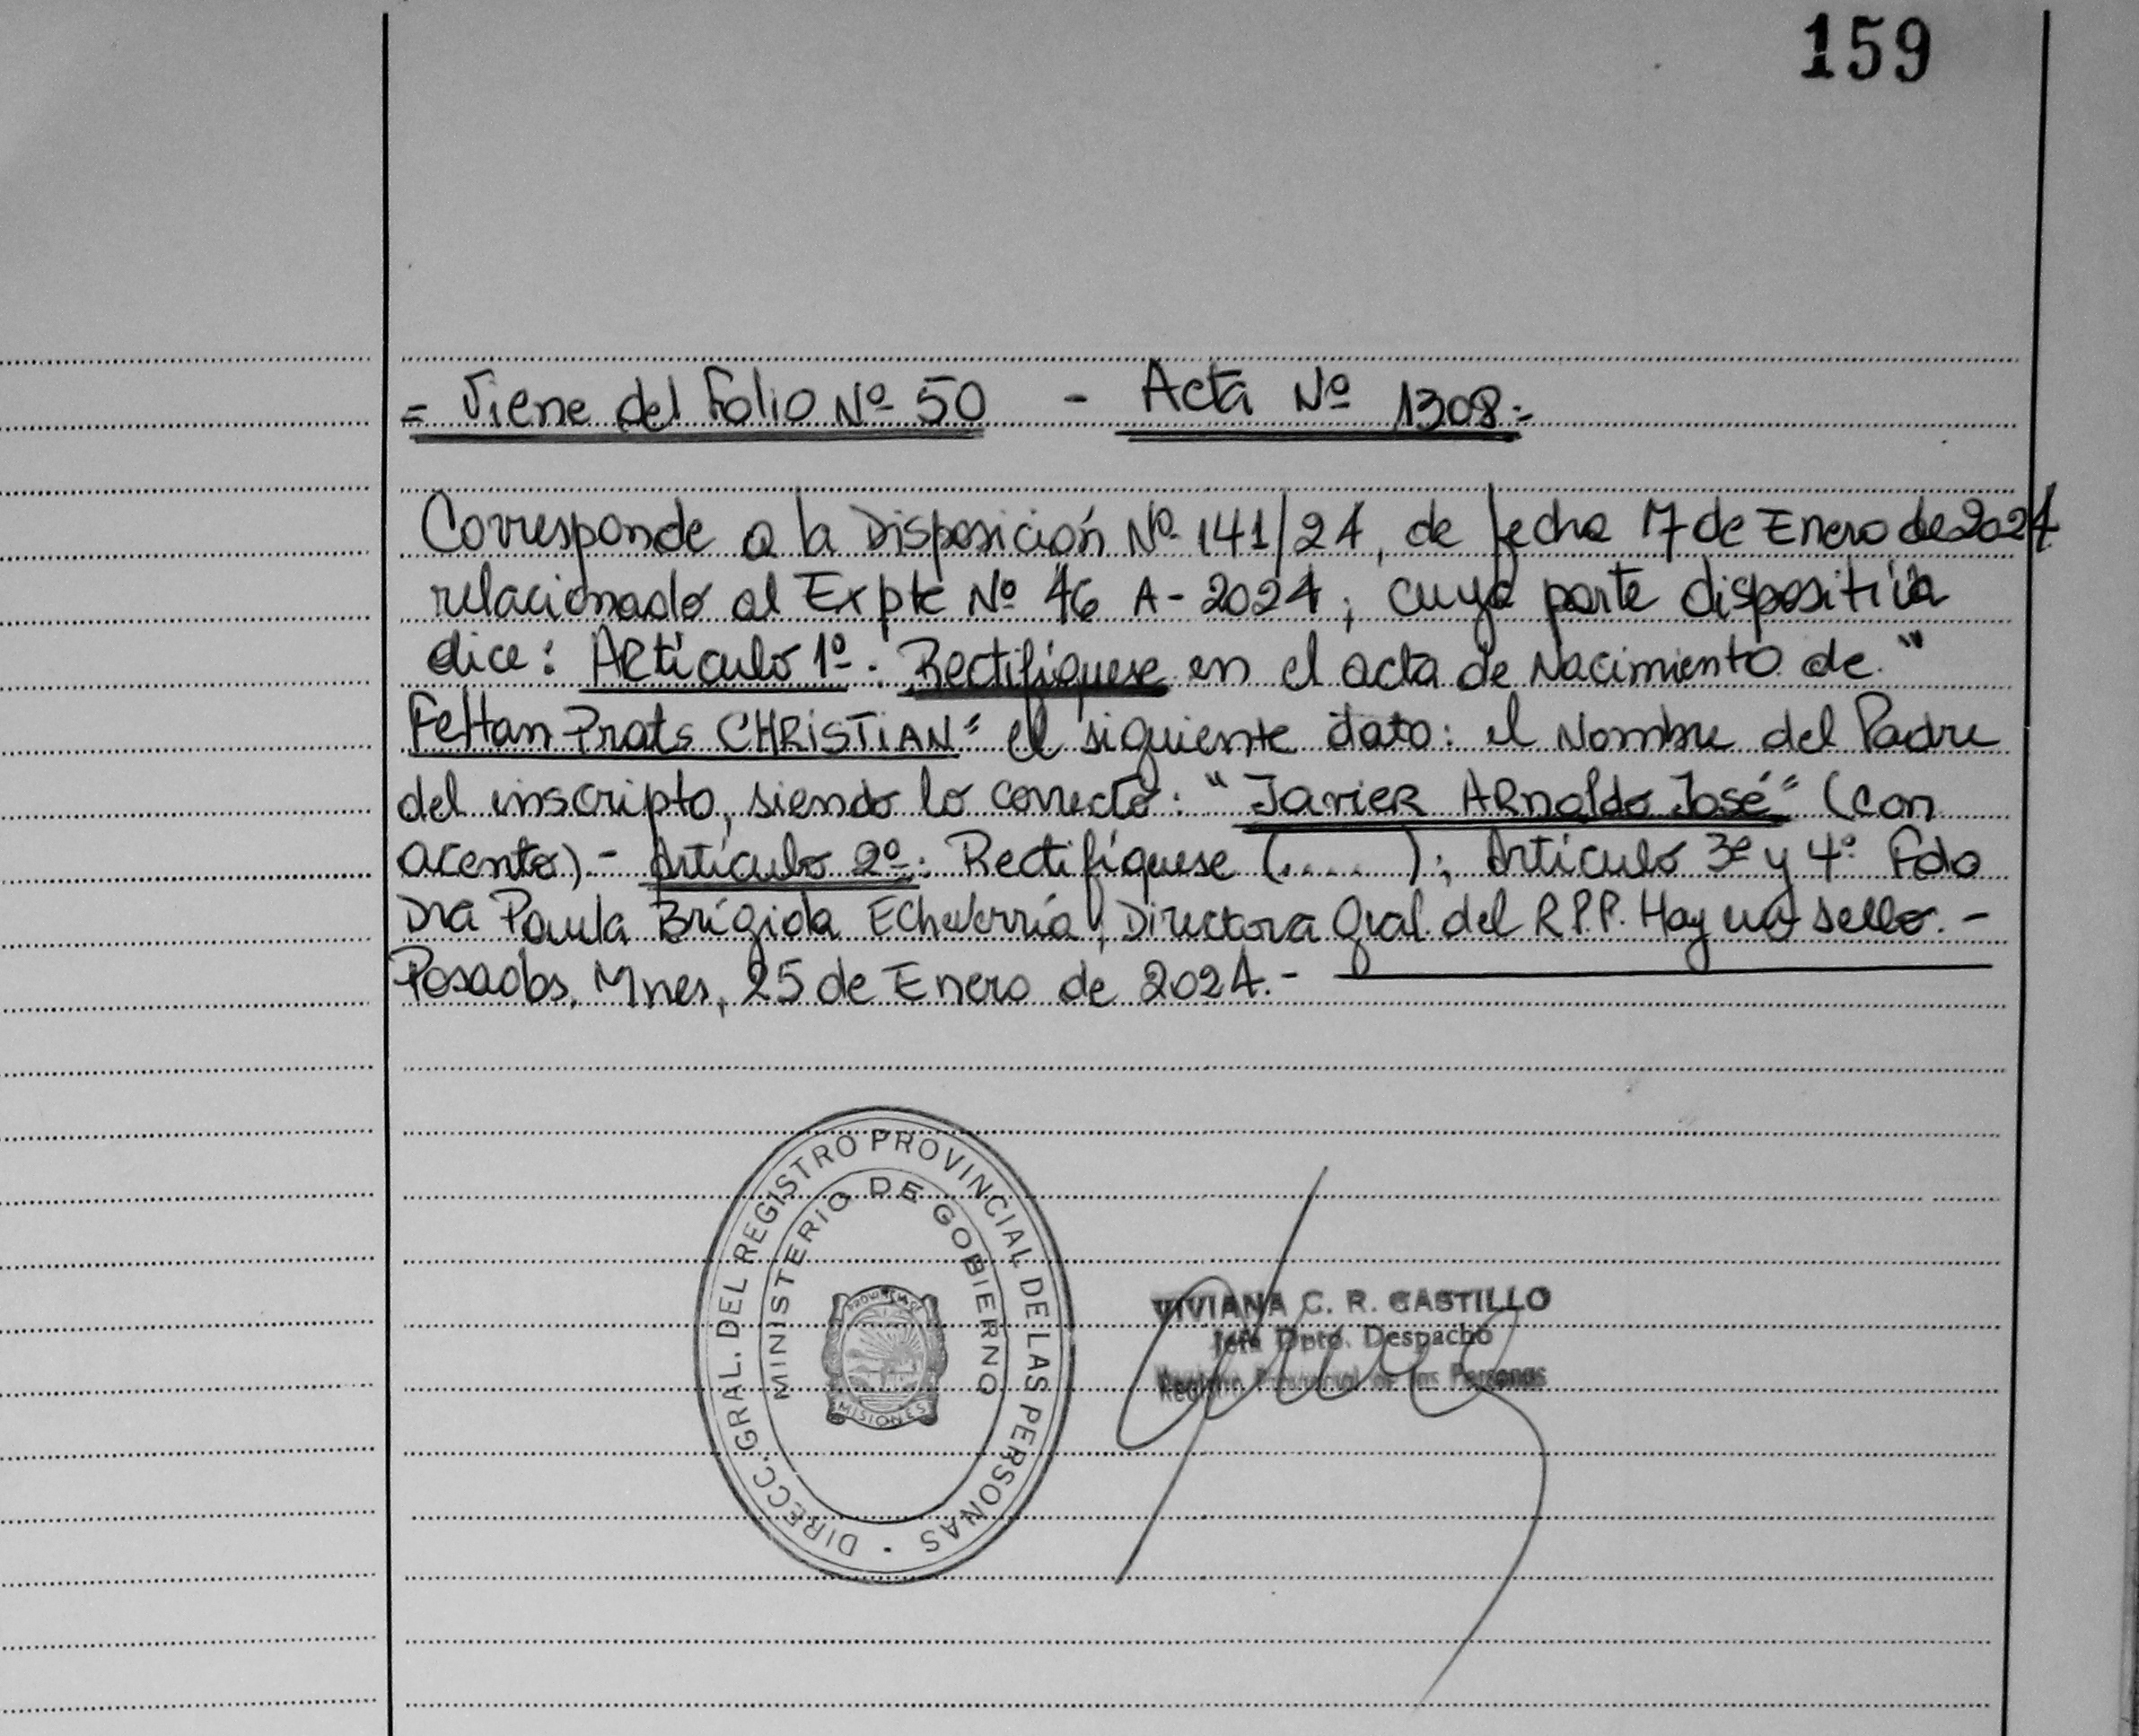 159
= Viene del Folio Nº 50 - Acta Nº 1308=
Corresponde a la Disposición Nº 141/24, de fecha 17 de Enero de 2024
relacionado al Expte Nº 46 A-2024; cuya parte dispositiva
dice: Artículo 1º. Rectifíquese en el acta de Nacimiento de "
Prats CHRISTIAN" el siguiente dato: el Nombre del Padre
del inscripto, siendo lo correcto: "Javier Arnaldo José" (con
acento).- Artículo 2º: Rectifíquese (....); Artículo 3º y 4º Fdo
Dra Paula Brígida Echeverría, Directora Gral. del R.P.P. Hay un sello.-
Posadas, Mnes, 25 de Enero de 2024.-
DIRECC. GRAL. DEL REGISTRO PROVINCIAL DE LAS PERSONAS
MINISTERIO DE GOBIERNO
MISIONES
VIVIANA C. R. CASTILLO
Jefa Dpto. Despacho
Registro Provincial de las Personas